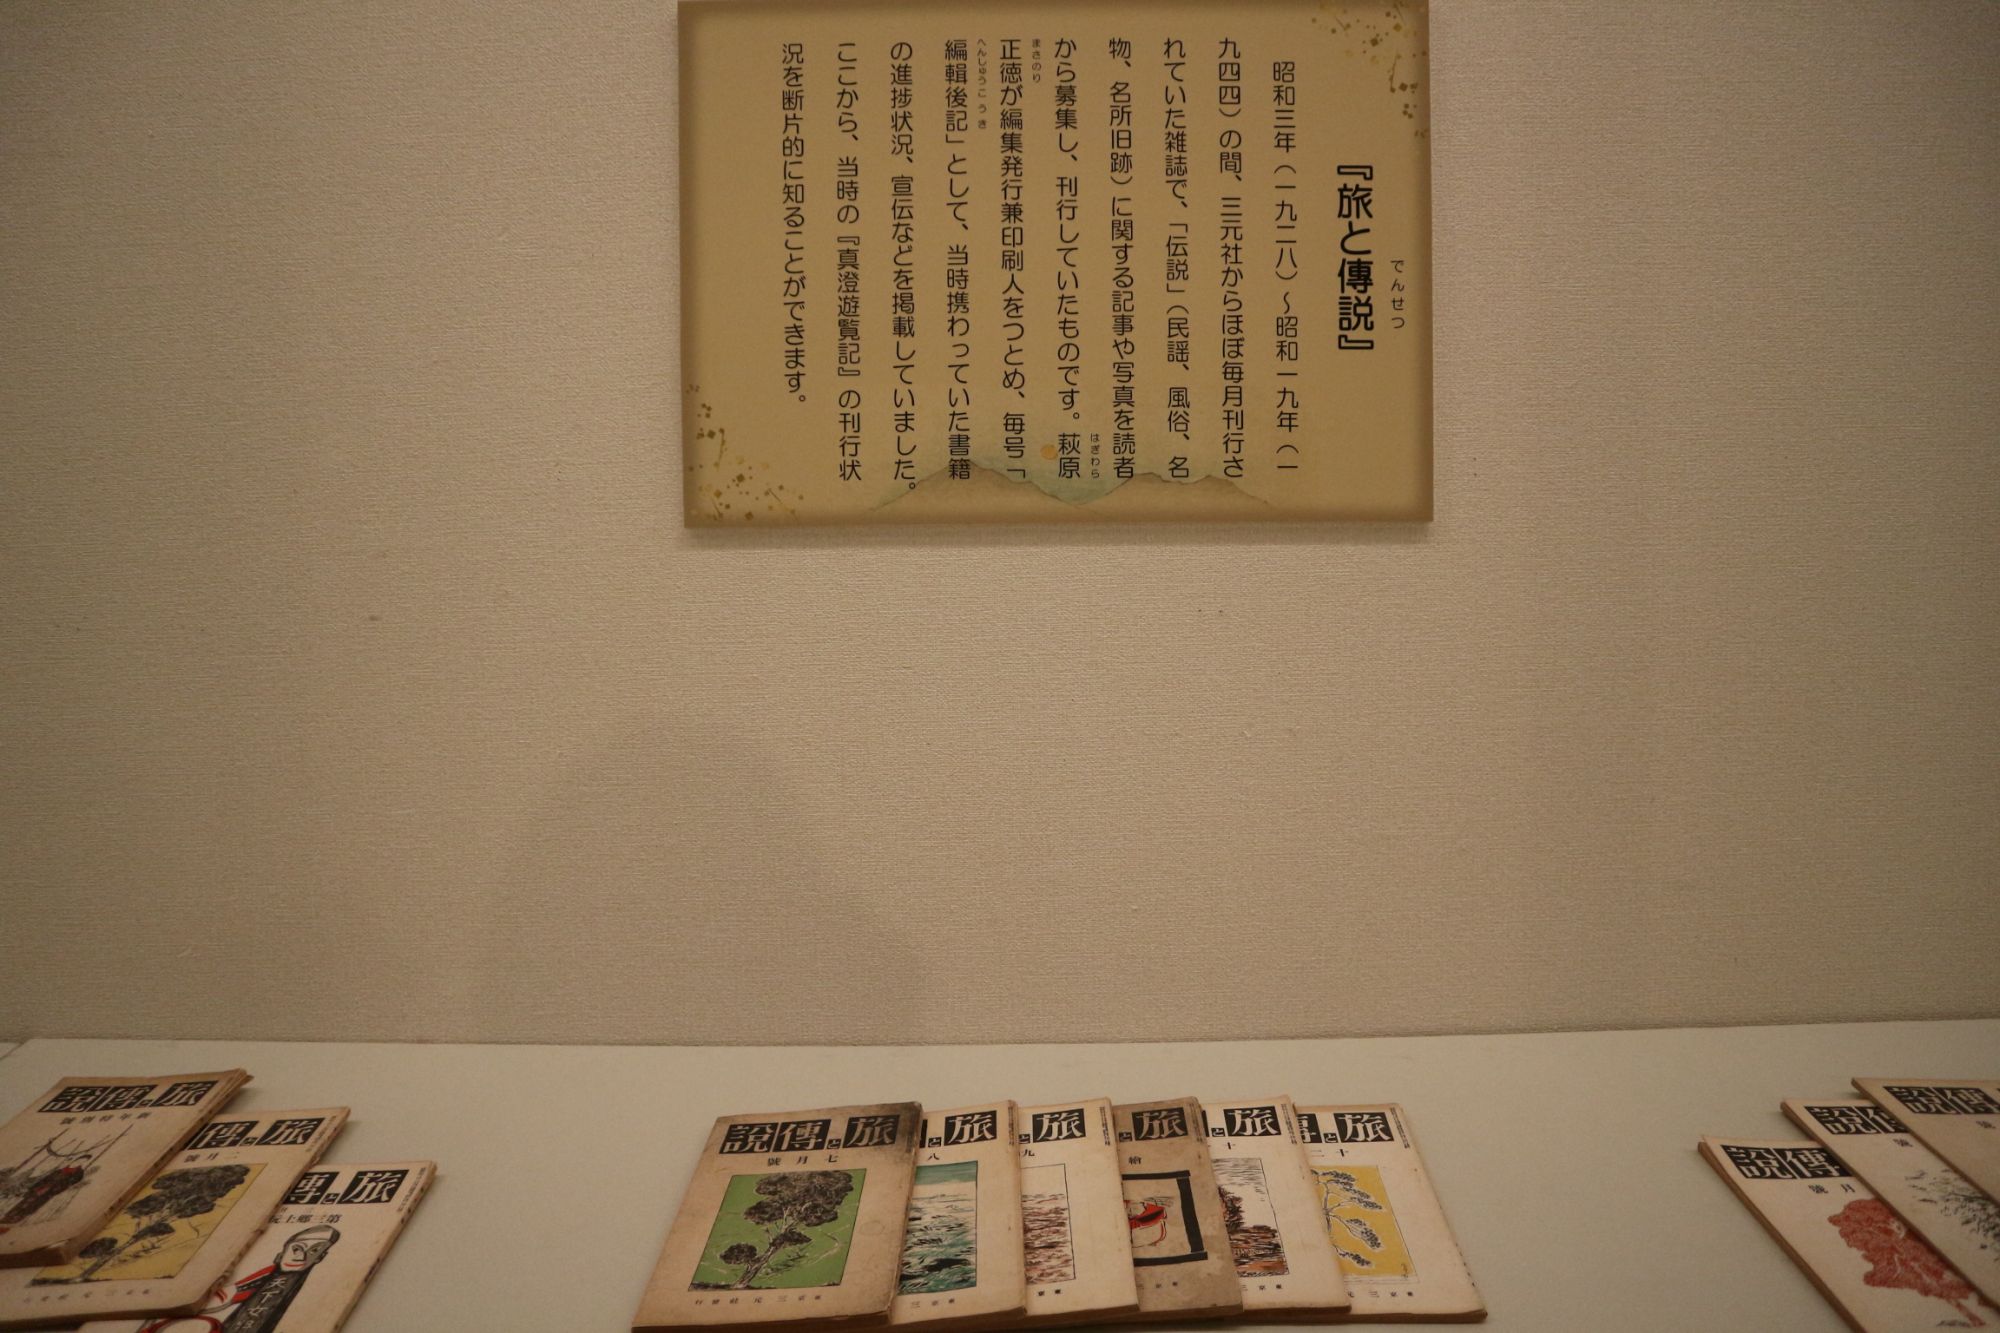 『旅と傳説』
でんせつ
昭和三年（一九二八）～昭和一九年（一
九四四）の間、三元社からほぼ毎月刊行さ
れていた雑誌で、「伝説」（民謡、風俗、名
物、名所旧跡）に関する記事や写真を読者
から募集し、刊行していたものです。萩原
はぎわら
正徳が編集発行兼印刷人をつとめ、毎号「
まさのり
編輯後記」として、当時携わっていた書籍
へんしゅうこうき
の進捗状況、宣伝などを掲載していました。
ここから、当時の『真澄遊覧記』の刊行状
況を断片的に知ることができます。
旅と傳說
新年特別號
旅と傳
二月號
旅と傳
第三鄉土玩
天下女
旅と傳說
七月號
東京三元社發行
と旅
八
東京三
と旅
九
東京
と旅
繪
東京三
と旅
十
東京三
傳と旅
十二
東京三元
傳說
月號
說
號
傳說
號